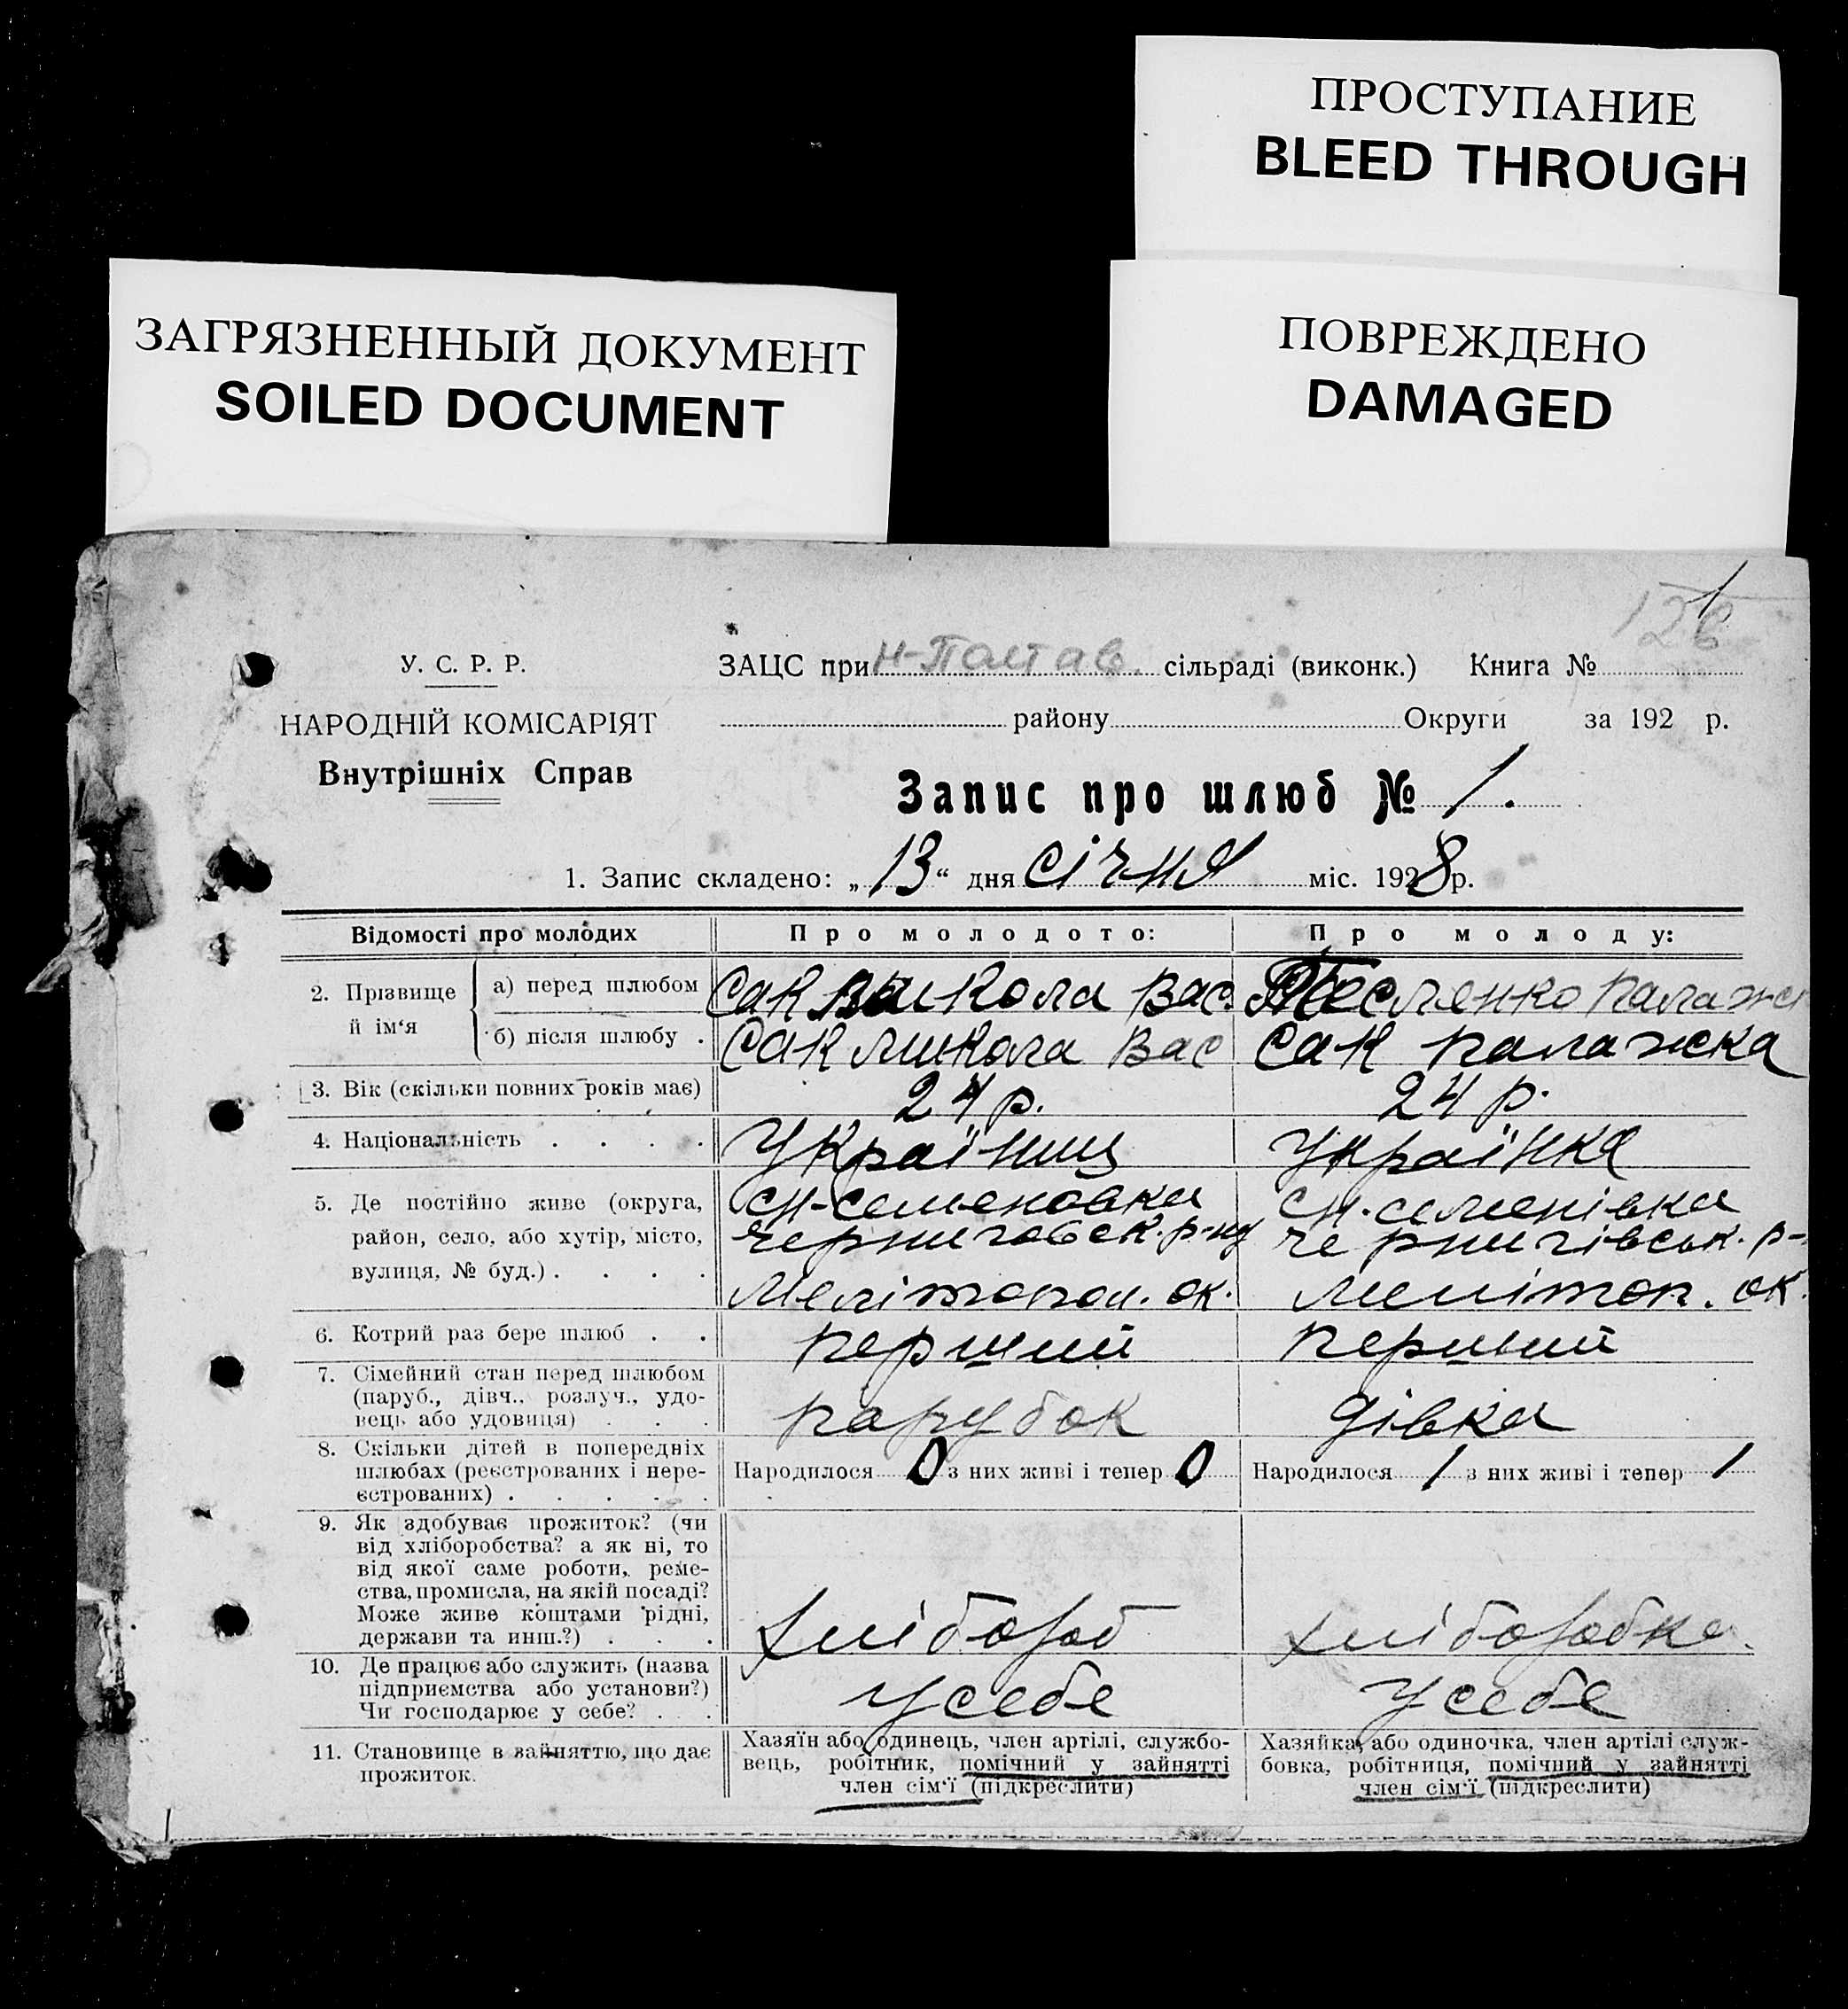 ПРОСТУПАНИЕ
BLEED THROUGH
ЗАГРЯЗНЕННЫЙ ДОКУМЕНТ
SOILED DOCUMENT
ПОВРЕЖДЕНО
DAMAGED
У. С. Р. Р.
НАРОДНІЙ КОМІСАРІЯТ
Внутрішніх Справ
ЗАЦС при Н-Полтав. сільраді (виконк.) Книга №
району Округи за 192 р.
Запис про шлюб № 1.
1. Запис складено: „13“ дня січня міс. 1928 р.
Відомості про молодих Про молодого: Про молоду:
2. Прізвище й ім‘я
а) перед шлюбом Сак Микола Вас. Тесленко Палажк
б) після шлюбу . Сак Микола Вас Сак Палажка
3. Вік (скільки повних років має) 24 р. 24 р.
4. Національність . . . . Україниц Українка
5. Де постійно живе (округа, район, село, або хутір, місто, вулиця, № буд.) . . . .
см-семеновка
черниговск. р-ну
Мелітопол. ок.
см. семенівка
чернигівськ. р-
Мелітоп. ок.
6. Котрий раз бере шлюб . . Перший Перший
7. Сімейний стан перед шлюбом
(паруб., дівч., розлуч., удо-
вець або удовиця) . . . парубок дівка
8. Скільки дітей в попередніх
шлюбах (реєстрованих і нере-
єстрованих) . . . . .
Народилося 0 з них живі і тепер 0 Народилося 1 з них живі і тепер 1
9. Як здобуває прожиток? (чи
від хліборобства? а як ні, то
від якої саме роботи, реме-
ства, промисла, на якій посаді?
Може живе коштами рідні,
держави та инш.?) . . . хлібороб хліборобка
10. Де працює або служить (назва
підприємства або установи?)
Чи господарює у себе? . . . У себе У себе
11. Становище в зайняттю, що дає
прожиток.
Хазяїн або одинець, член артілі, службо-
вець, робітник, помічний у зайнятті
член сім‘ї (підкреслити)
Хазяйка, або одиночка, член артілі служ-
бовка, робітниця, помічний у зайнятті
член сім‘ї (підкреслити)